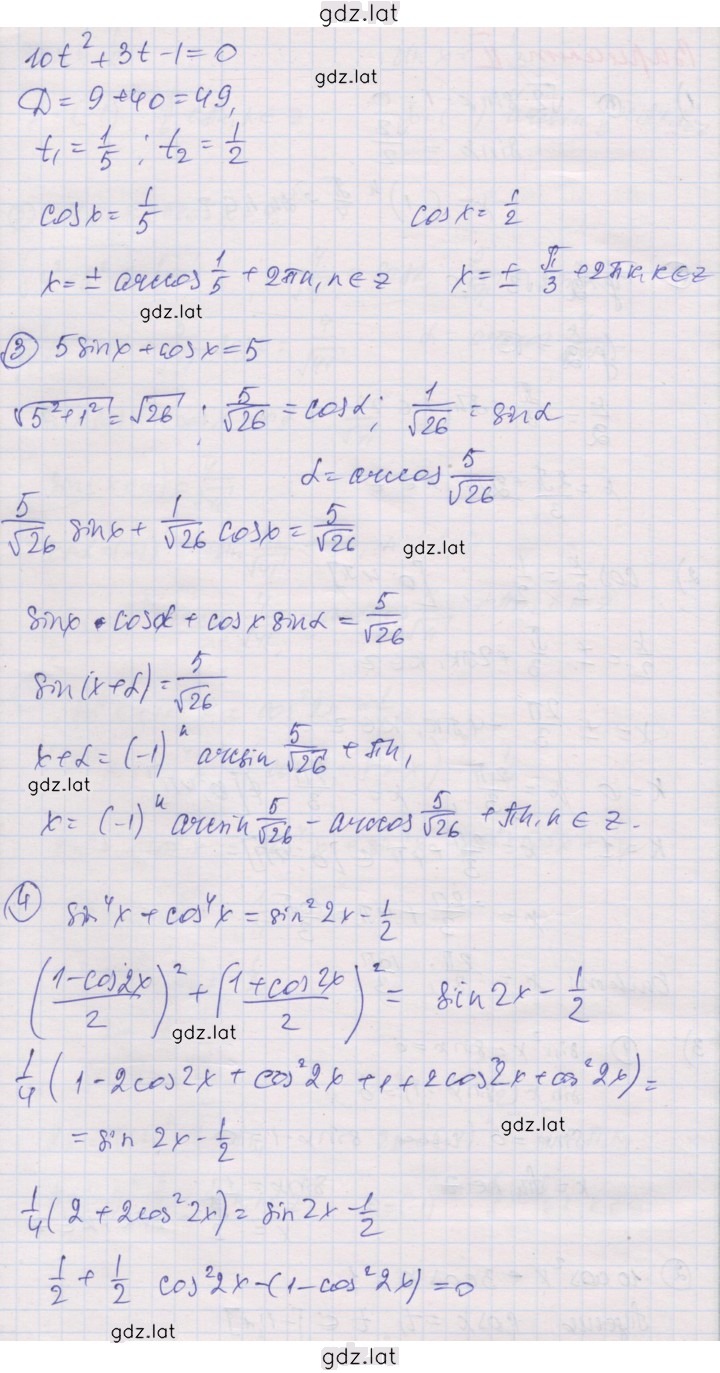 gdz.lat
10t² + 3t - 1 = 0
gdz.lat
D = 9 + 40 = 49,
t₁ = 1/5 ; t₂ = 1/2
cos x = 1/5 cos x = 1/2
x = ± arccos 1/5 + 2πn, n ∈ z x = ± π/3 + 2πk, k ∈ z
gdz.lat
③ 5 sin x + cos x = 5
√(5² + 1²) = √26 ; 5/√26 = cos α; 1/√26 = sin α
α = arccos 5/√26
5/√26 sin x + 1/√26 cos x = 5/√26
gdz.lat
sin x · cos α + cos x sin α = 5/√26
sin (x + α) = 5/√26
x + α = (-1)ⁿ arcsin 5/√26 + πn,
gdz.lat
x = (-1)ⁿ arcsin 5/√26 - arccos 5/√26 + πn, n ∈ z.
④ sin⁴x + cos⁴x = sin² 2x - 1/2
((1 - cos 2x)/2)² + ((1 + cos 2x)/2)² = sin 2x - 1/2
gdz.lat
1/4 (1 - 2cos 2x + cos² 2x + 1 + 2cos 2x + cos² 2x) =
gdz.lat
= sin 2x - 1/2
1/4 (2 + 2cos² 2x) = sin 2x - 1/2
1/2 + 1/2 cos² 2x - (1 - cos² 2x) = 0
gdz.lat
gdz.lat